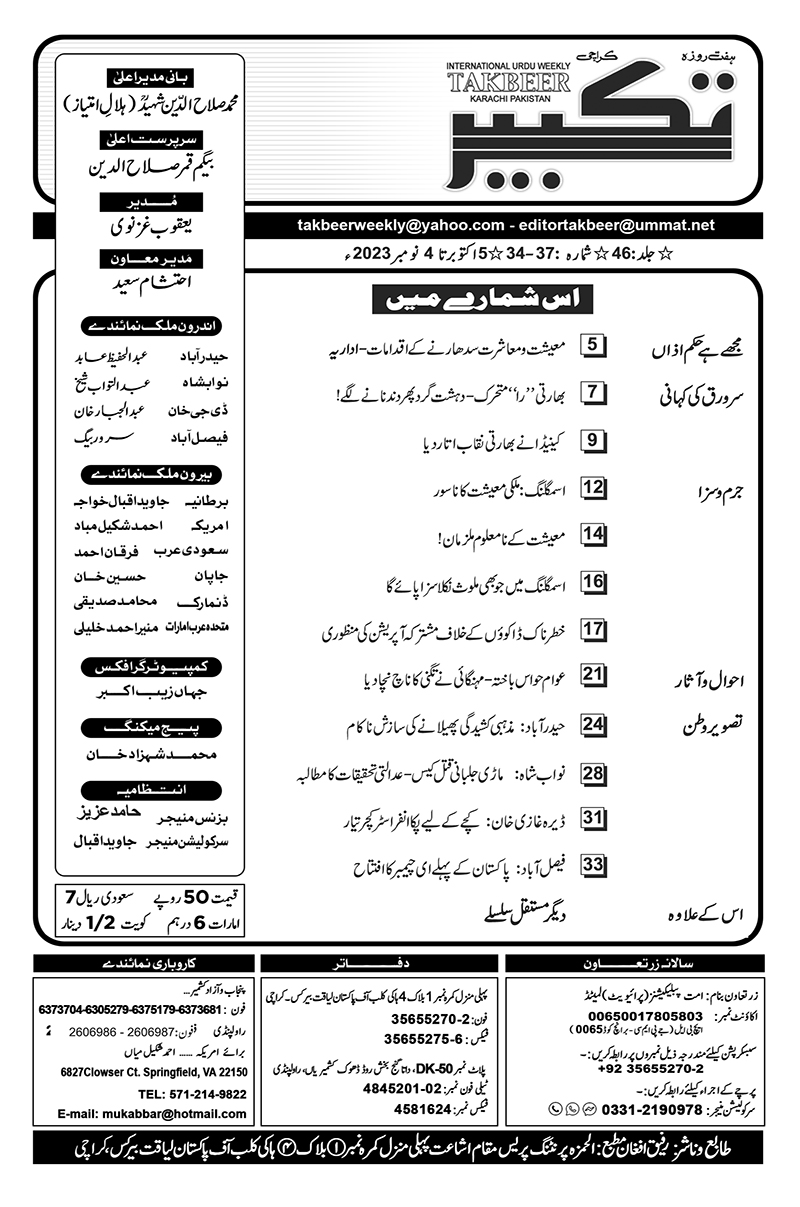 ہفت روزہ
کراچی
تکبیر
INTERNATIONAL URDU WEEKLY
TAKBEER
KARACHI PAKISTAN
takbeerweekly@yahoo.com - editortakbeer@ummat.net
☆ جلد:46 ☆ شمارہ :37-34 ☆ 5 اکتوبر تا 4 نومبر 2023ء
اس شمارے میں
مجھے ہے حکم اذاں 5 معیشت و معاشرت سدھارنے کے اقدامات - اداریہ
سرورق کی کہانی 7 بھارتی ’’را‘‘ متحرک - دہشت گرد پھر دندنانے لگے!
9 کینیڈا نے بھارتی نقاب اتار دیا
جرم و سزا 12 اسمگلنگ: ملکی معیشت کا ناسور
14 معیشت کے نامعلوم ملزمان!
16 اسمگلنگ میں جو بھی ملوث نکلا سزا پائے گا
17 خطرناک ڈاکوؤں کے خلاف مشترکہ آپریشن کی منظوری
احوال و آثار 21 عوام حواس باختہ - مہنگائی نے تگنی کا ناچ نچا دیا
تصویر وطن 24 حیدرآباد: مذہبی کشیدگی پھیلانے کی سازش ناکام
28 نواب شاہ: ماڑی جلبانی قتل کیس - عدالتی تحقیقات کا مطالبہ
31 ڈیرہ غازی خان: کچے کے لیے پکا انفرا سٹرکچر تیار
33 فیصل آباد: پاکستان کے پہلے ای چیمبر کا افتتاح
اس کے علاوہ دیگر مستقل سلسلے
بانی مدیر اعلیٰ
محمد صلاح الدین شہیدؒ (ہلال امتیاز)
سرپرست اعلیٰ
بیگم قمر صلاح الدین
مُدیر
یعقوب غزنوی
مدیر معاون
احتشام سعید
اندرون ملک نمائندے
حیدرآباد عبدالحفیظ عابد
نوابشاہ عبدالتواب شیخ
ڈی جی خان عبدالجبار خان
فیصل آباد سرور بیگ
بیرون ملک نمائندے
برطانیہ جاوید اقبال خواجہ
امریکہ احمد شکیل میاں
سعودی عرب فرقان احمد
جاپان حسین خان
ڈنمارک محامد صدیقی
متحدہ عرب امارات منیر احمد خلیلی
کمپیوٹر گرافکس
جہاں زیب اکبر
پیج میکنگ
محمد شہزاد خان
انتظامیہ
بزنس منیجر حامد عزیز
سرکولیشن منیجر جاوید اقبال
قیمت 50 روپے سعودی ریال 7
امارات 6 درہم کویت 1/2 دینار
سالانہ زر تعاون
زر تعاون بنام: امت پبلیکیشنز (پرائیویٹ) لمیٹڈ
اکاؤنٹ نمبر: 00650017805803
ایچ بی ایل (جے پی ایم سی - برانچ کوڈ 0065)
سبسکرپشن کیلئے مندرجہ ذیل نمبروں پر رابطہ کریں:-
+92 35655270-2
پرچے کے اجراء کیلئے رابطہ کریں:-
سرکولیشن منیجر: 0331-2190978
دفاتر
پہلی منزل کمرہ نمبر 1 بلاک 4 ہاکی کلب آف پاکستان لیاقت بیرکس - کراچی
فون: 35655270-2
فیکس: 35655275-6
پلاٹ نمبر DK-50، داتا گنج بخش روڈ ڈھوک کشمیریاں، راولپنڈی
ٹیلی فون نمبر: 4845201-02
فیکس نمبر: 4581624
کاروباری نمائندے
پنجاب و آزاد کشمیر...
فون : 6373704-6305279-6375179-6373681
راولپنڈی ففون: 2606986 - 2606987
برائے امریکہ ...... احمد شکیل میاں
6827Clowser Ct. Springfield, VA 22150
TEL: 571-214-9822
E-mail: mukabbar@hotmail.com
طابع و ناشر: رفیق افغان مطبع: الحمزہ پرنٹنگ پریس مقام اشاعت پہلی منزل کمرہ نمبر ۱ بلاک ۴ ہاکی کلب آف پاکستان لیاقت بیرکس، کراچی